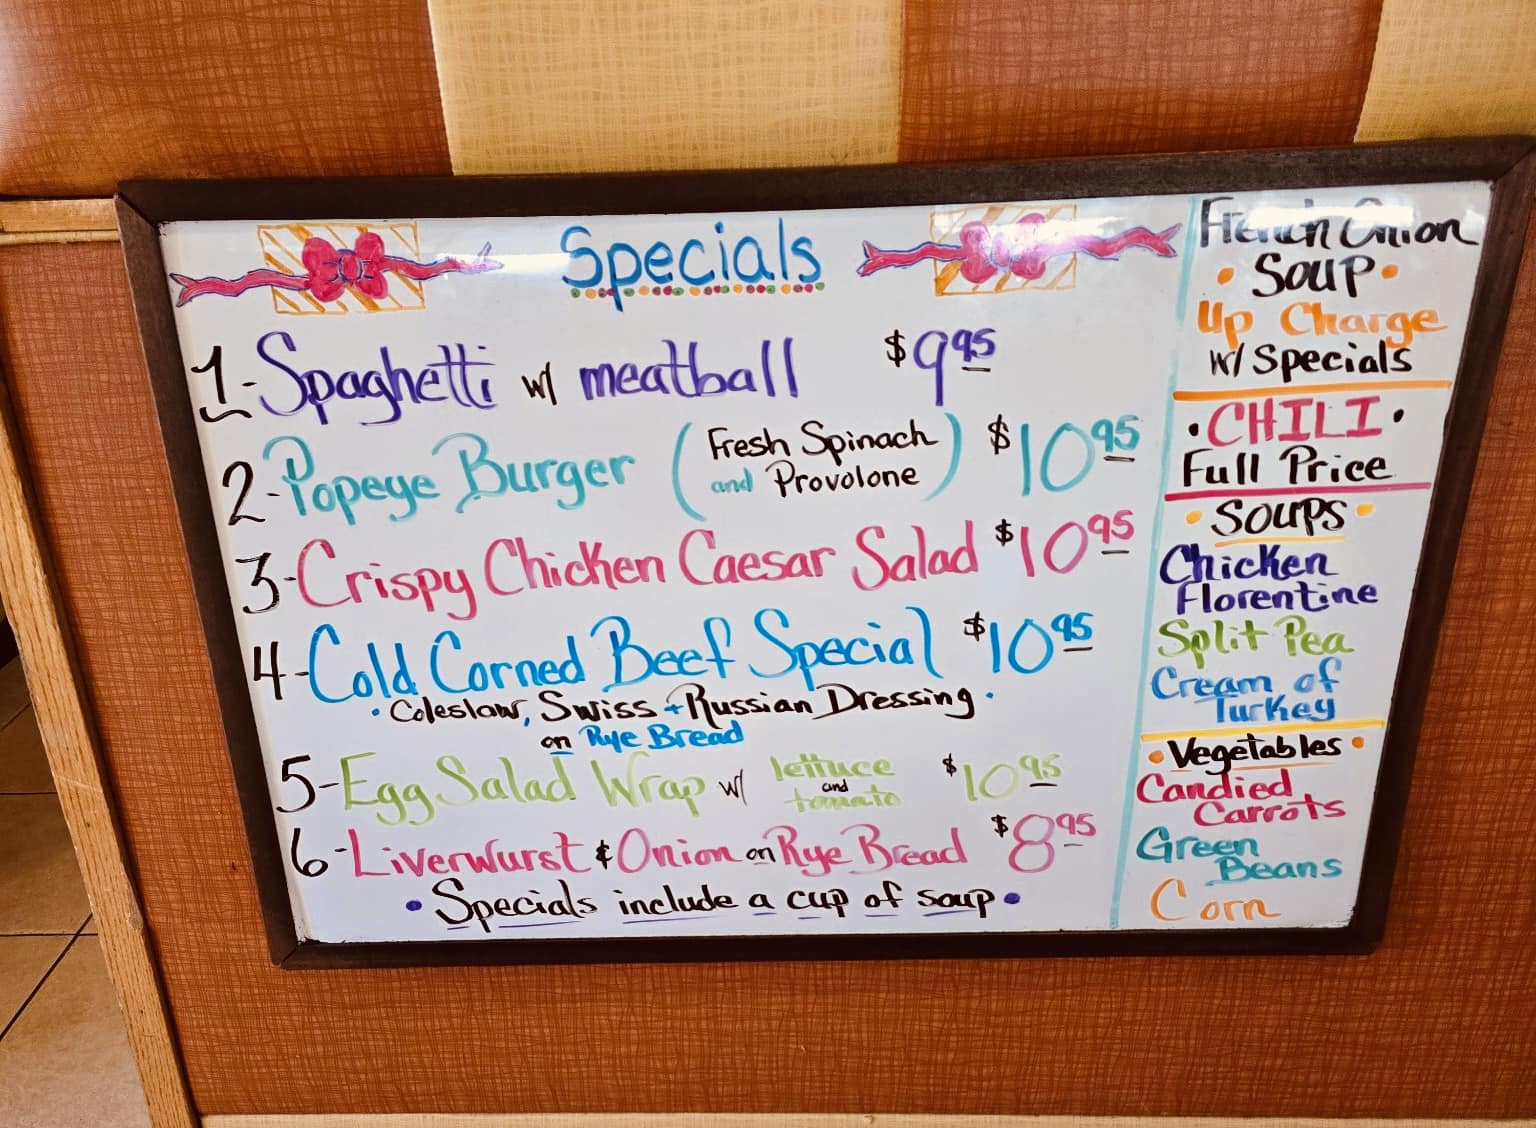 Specials
1-Spaghetti w/ meatball $9.95
2-Popeye Burger (Fresh Spinach and Provolone) $10.95
3-Crispy Chicken Caesar Salad $10.95
4-Cold Corned Beef Special $10.95
• Coleslaw, Swiss + Russian Dressing •
on Rye Bread
5-Egg Salad Wrap w/ lettuce and tomato $10.95
6-Liverwurst & Onion on Rye Bread $8.95
• Specials include a cup of soup •
French Onion
• Soup •
Up Charge
w/ Specials
• CHILI •
Full Price
• SOUPS •
Chicken
Florentine
Split Pea
Cream of
Turkey
• Vegetables •
Candied
Carrots
Green
Beans
Corn